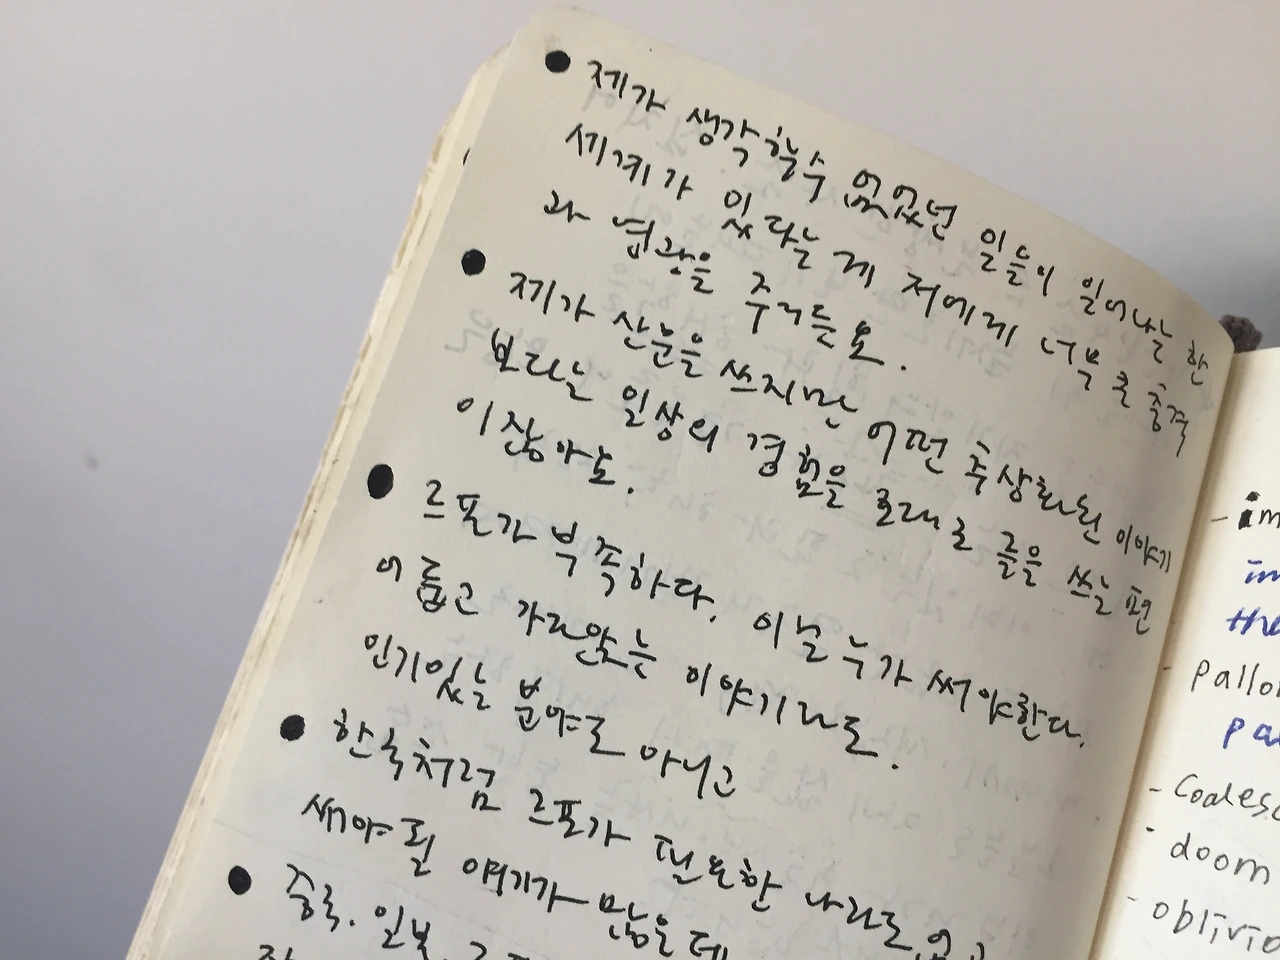 제가 생각할수 없었던 일들이 일어나는 한
세계가 있다는 게 저에게 너무 큰 충격
과 영광을 주거든요.
제가 산문을 쓰지만 어떤 추상화된 이야기
보다는 일상의 경험을 토대로 글을 쓰는 편
이잖아요.
르포가 부족하다. 이럴 누가 써야한다.
어둡고 가라앉는 이야기라도.
인기있는 분야도 아니고
한국처럼 르포가 필요한 나라도 없고
써야 될 얘기가 많은데
중국. 일본.
- im
im
the
- pallo
pa
- Codes
doom
- oblivio